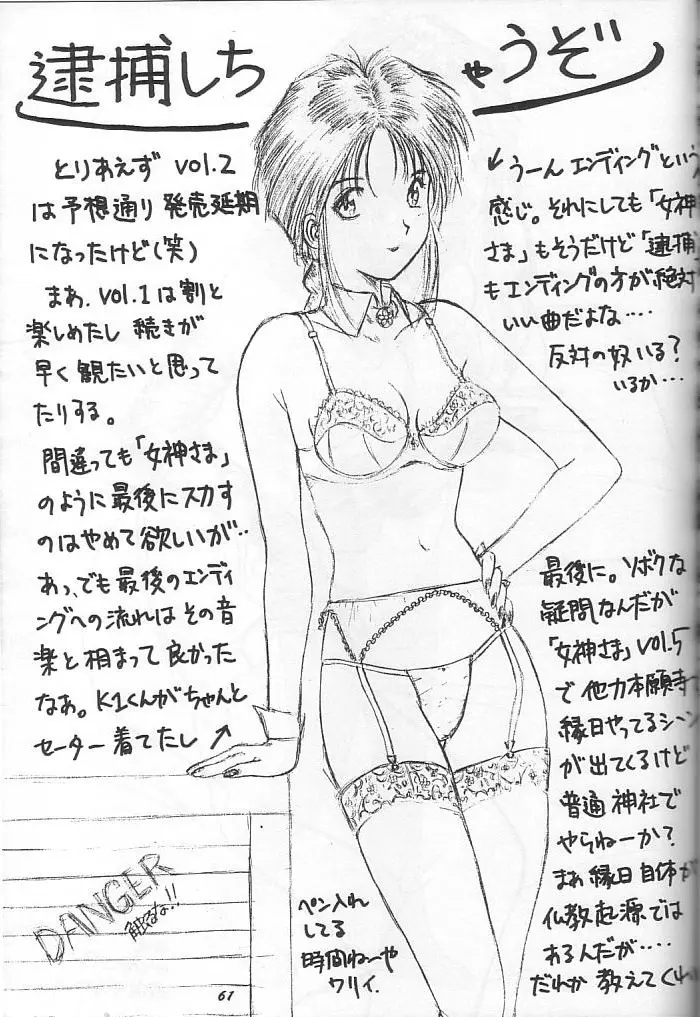 逮捕しちゃうぞ
とりあえず vol.2
は予想通り発売延期
になったけど(笑)
まあ、vol.1は割と
楽しめたし 続きが
早く観たいと思って
たりする。
間違っても「女神さま」
のように最後にスカす
のはやめて欲しいが‥
あっ、でも最後のエンディ
ングへの流れはその音
楽と相まって良かった
なあ。K1くんがちゃんと
セーター着てたし ↗
↙ うーん エンディングという
感じ。それにしても「女神
さま」もそうだけど「逮捕」
もエンディングの方が絶対
いい曲だよな‥‥
反対の奴いる?
いるか‥‥
最後に。ソボクな
疑問なんだが
「女神さま」vol.5
で他力本願寺で
縁日やってるシーン
が出てくるけど
普通神社で
やらねーか?
まぁ縁日自体が
仏教起源では
あるんだが‥‥
だれか教えてくれ
ペン入れ
してる
時間ねーや
ワリイ.
DANGER
触るな!!
61